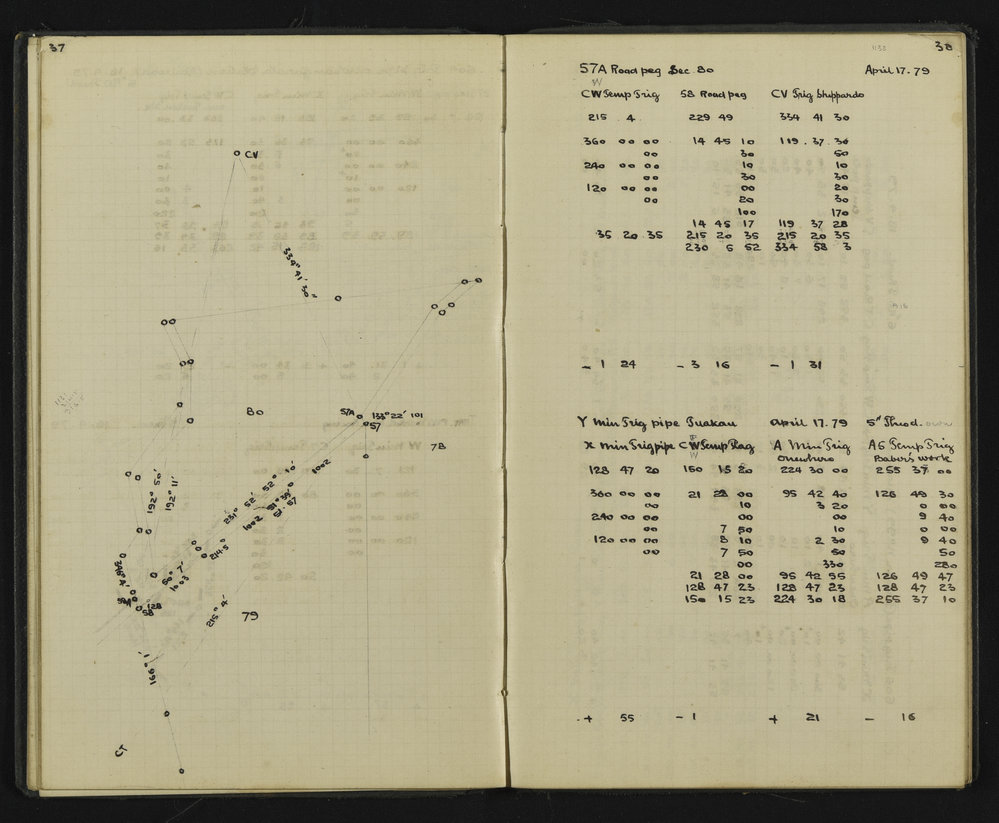 37
CV
334° 41' 30"
80
57A 133° 22' 101
57
78
192° 50'
192° 11'
231° 52' 52° 10'
1002
1002 51° 39'
51 57
214.5
60° 7'
1003
346° 4'
128
58
215° 4'
79
166° 1'
CT
38
57A Road peg Sec. 80 April 17. 79
CW Temp Trig 58 Road peg CV Trig Sheppards
215 4 229 49 334 41 30
360 00 00 14 45 10 119. 37. 30
00 30 50
240 00 00 10 10
00 30 30
120 00 00 00 20
00 20 30
100 170
14 45 17 119 37 28
35 20 35 215 20 35 215 20 35
230 5 52 334 58 3
- 1 24 - 3 16 - 1 31
Y Min Trig pipe Tuakau April 17. 79 5" Theod. own
X Min Trig pipe CW Temp Flag A Min Trig A6 Temp Trig
Onewhero Baber's work
128 47 20 150 15 20 224 30 00 255 37 00
360 00 00 21 28 00 95 42 40 126 49 30
00 10 3 20 0 00
240 00 00 00 00 9 40
00 7 50 10 0 00
120 00 00 8 10 2 30 9 40
00 7 50 50 50
00 330 280
21 28 00 95 42 55 126 49 47
128 47 23 128 47 23 128 47 23
150 15 23 224 30 18 255 37 10
+ 55 - 1 + 21 - 16